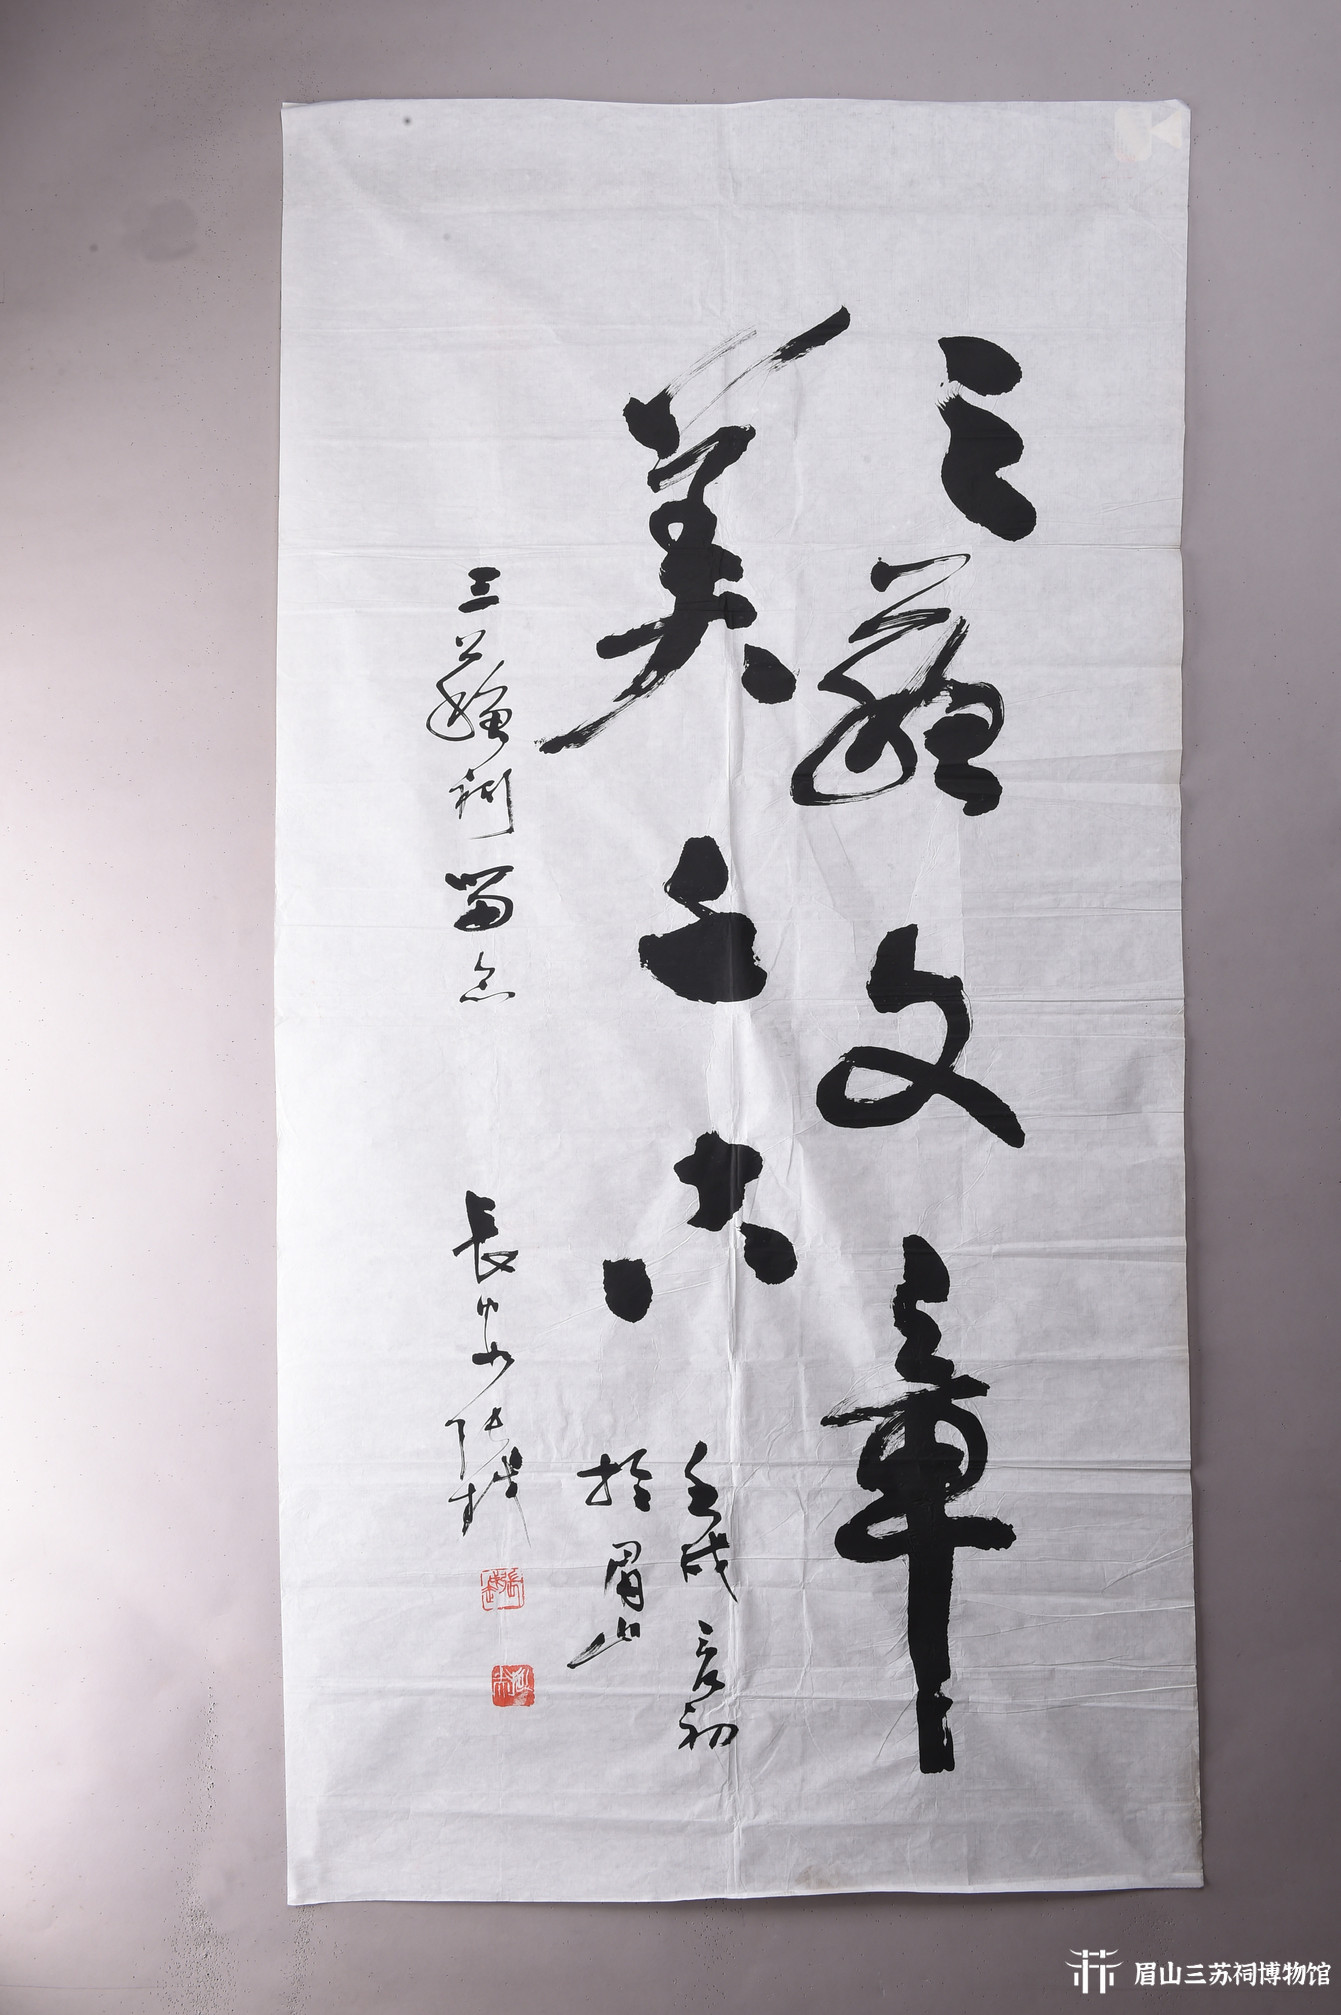 三蘇文章
美之
壬戌夏初
於眉山
三蘇祠留念 長安張
眉山三苏祠博物馆